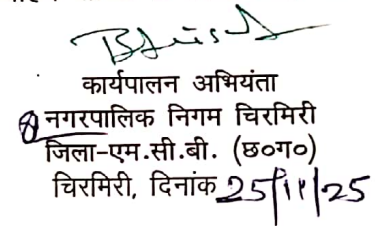 कार्यपालन अभियंता
नगरपालिक निगम चिरमिरी
जिला-एम.सी.बी. (छ०ग०)
चिरमिरी, दिनांक 25/11/25